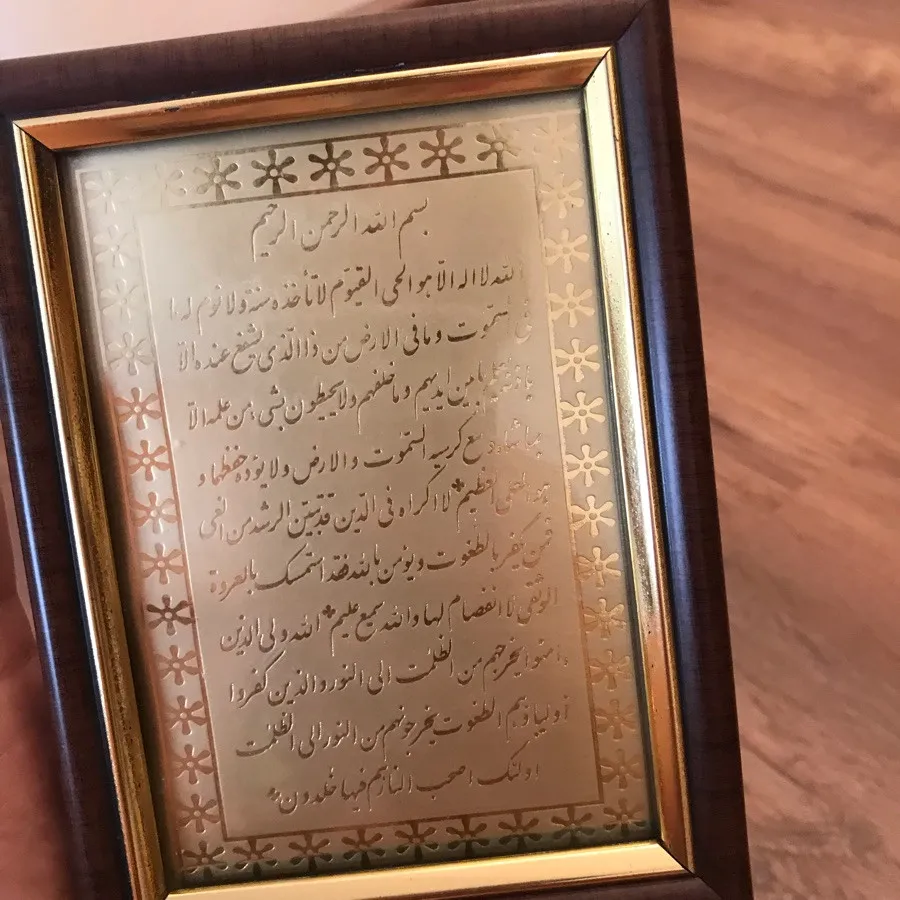 بسم الله الرحمن الرحیم
الله لا اله الّا هو الحی القیوّم لا تأخذه سنة ولا نوم له ما
فی السّمٰوت وما فی الارض من ذا الّذی یشفع عنده الّا
باذنه یعلم ما بین ایدیهم وما خلفهم ولا یحیطون بشیء من علمه الّا
بما شاء وسع کرسیه السّمٰوت والارض ولا یؤده حفظهما و
هو العلی العظیم * لا اکراه فی الدّین قد تبیّن الرشد من الغی
فمن یکفر بالطغوت ویؤمن بالله فقد استمسک بالعروة
الوثقی لا انفصام لها والله سمیع علیم * الله ولی الذین
ءامنوا یخرجهم من الظلمت الی النور والذین کفروا
اولیاؤهم الطغوت یخرجونهم من النور الی الظلمت
اولئک اصحب النار هم فیها خلدون *